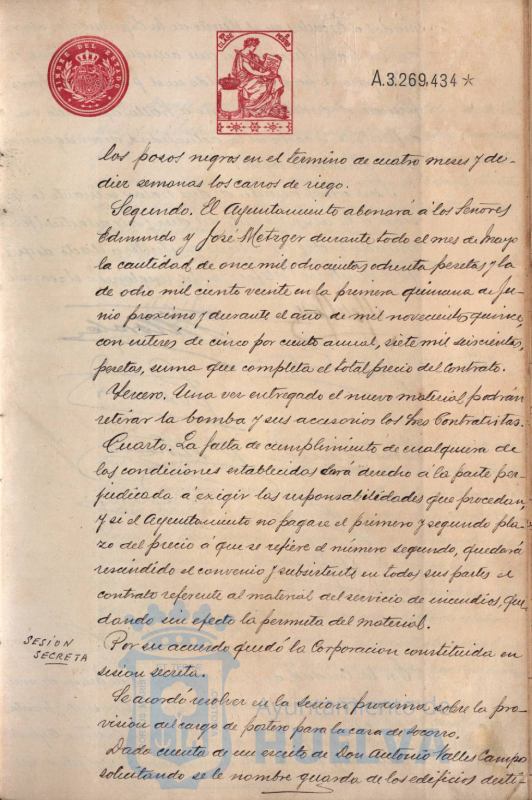 TIMBRE DEL ESTADO
CLASE
A.3.269,434 *
los posos negros en el termino de cuatro meses y de
diez semanas los carros de riego.
Segundo. El Ayuntamiento abonará á los Señores
Edmundo y José Metzger durante todo el mes de Mayo
la cantidad de once mil ochocientas ochenta pesetas y la
de ocho mil ciento veinte en la primera quincena de Ju-
nio proximo y durante el año de mil novecientos quince,
con interés de cinco por ciento anual, siete mil seiscientas
pesetas, suma que completa el total precio del Contrato.
Tercero. Una vez entregado el nuevo material podrán
retirar la bomba y sus accesorios los Sres Contratistas.
Cuarto. La falta de cumplimiento de cualquiera de
las condiciones establecidas dará derecho á la parte per-
judicada á exigir las responsabilidades que procedan,
y si el Ayuntamiento no pagare el primero y segundo pla-
zo del precio á que se refiere el número segundo, quedará
rescindido el convenio y subsistente en todas sus partes el
contrato referente al material del servicio de incendios, que-
dando sin efecto la permuta del material.
SESIÓN
SECRETA
Por su acuerdo quedó la Corporacion constituida en
sesion secreta.
Se acordó resolver en la sesion proxima sobre la pro-
vision del cargo de portero para la casa de Socorro.
Dada cuenta de un escrito de Don Antonio Valles Campo
solicitando se le nombre guarda de los edificios desti-
Ayuntamiento de